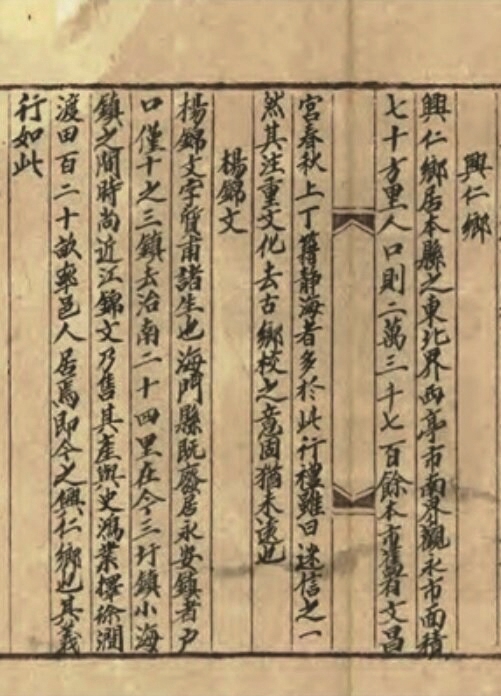 興仁鄉
興仁鄉居本縣之東北界西亭市南界觀永市面積
七十方里人口則二萬三千七百餘本市舊有文昌
宮春秋上丁籍靜海者多於此行禮雖曰迷信之一
然其注重文化去古鄉校之意固猶未遠也
楊錦文
楊錦文字質甫諸生也海門縣既廢居永安鎮者戶
口僅十之三鎮去治南二十四里在今三圩鎮小海
鎮之間時尚近江錦文乃售其產與史鴻業擇徐澗
渡田百二十畝率邑人居焉即今之興仁鄉也其義
行如此